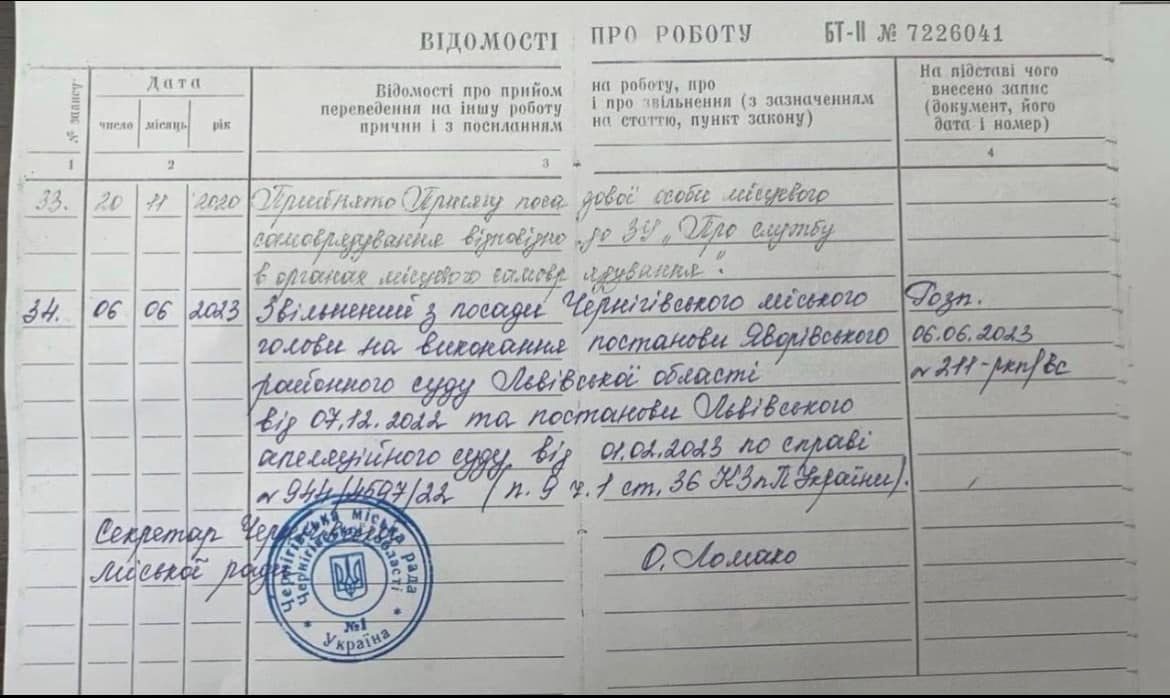 ВІДОМОСТІ ПРО РОБОТУ БТ-ІІ № 7226041
№ запису
Дата
число місяць рік
Відомості про прийом на роботу, про
переведення на іншу роботу і про звільнення (з зазначенням
причини і з посиланням на статтю, пункт закону)
На підставі чого
внесено запис
(документ, його
дата і номер)
1 2 3 4
33. 20 11 2020 Прийнято Присягу посадової особи місцевого
самоврядування відповідно до ЗУ „Про службу
в органах місцевого самоврядування".
34. 06 06 2023 Звільнений з посади Чернігівського міського Розп.
голови на виконання постанови Яворівського 06.06.2023
районного суду Львівської області № 211-ркп/вс
від 07.12.2022 та постанови Львівського
апеляційного суду від 01.02.2023 по справі
№ 944/4597/22 (п. 9 ч. 1 ст. 36 КЗпП України).
Секретар Чернігівської
міської ради О. Ломако
Чернігівська міська рада
Чернігівської області
№1
* Україна *